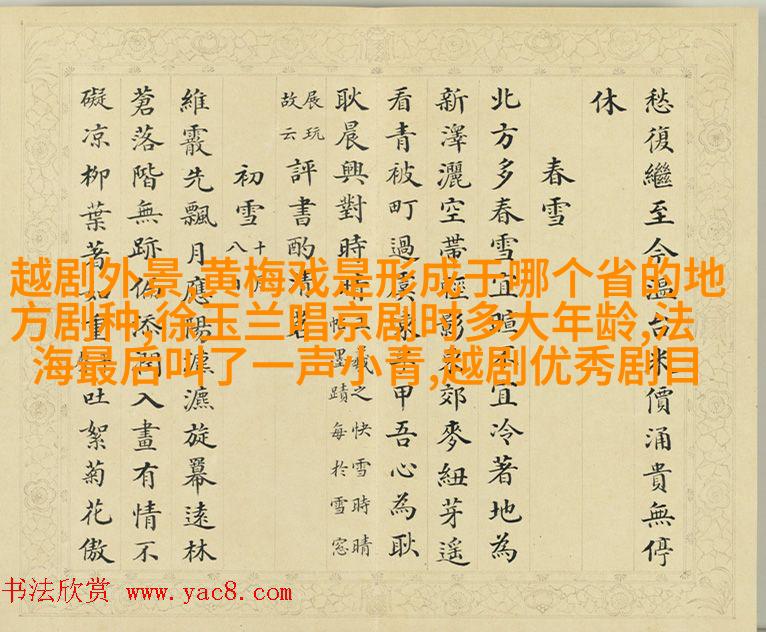 越剧外景,黄梅戏是形成于哪个省的地
方剧种,徐玉兰唱京剧时多大年龄,法
海最后叫了一声小青,越剧优秀剧目
愁復繼至今溫台米價涌貴無停
休
春雪
北方多春雪宜暄不宜冷著地為
新澤灑空帶輕影來郊麥紐芽遙
看青被町過甲吾心為耿
耿晨興對時晴
羲之快雪時晴
帖墨蹟每於雪窓
展玩
故云
評書酌清茗
初雪
十月
八
維霰先飄月應陽摵漉旋冪遠林
蒼落階無跡偏添潤入畫有情不
礙凉柳葉著如重吐絮菊花傲
书法欣赏 www.yac8.com